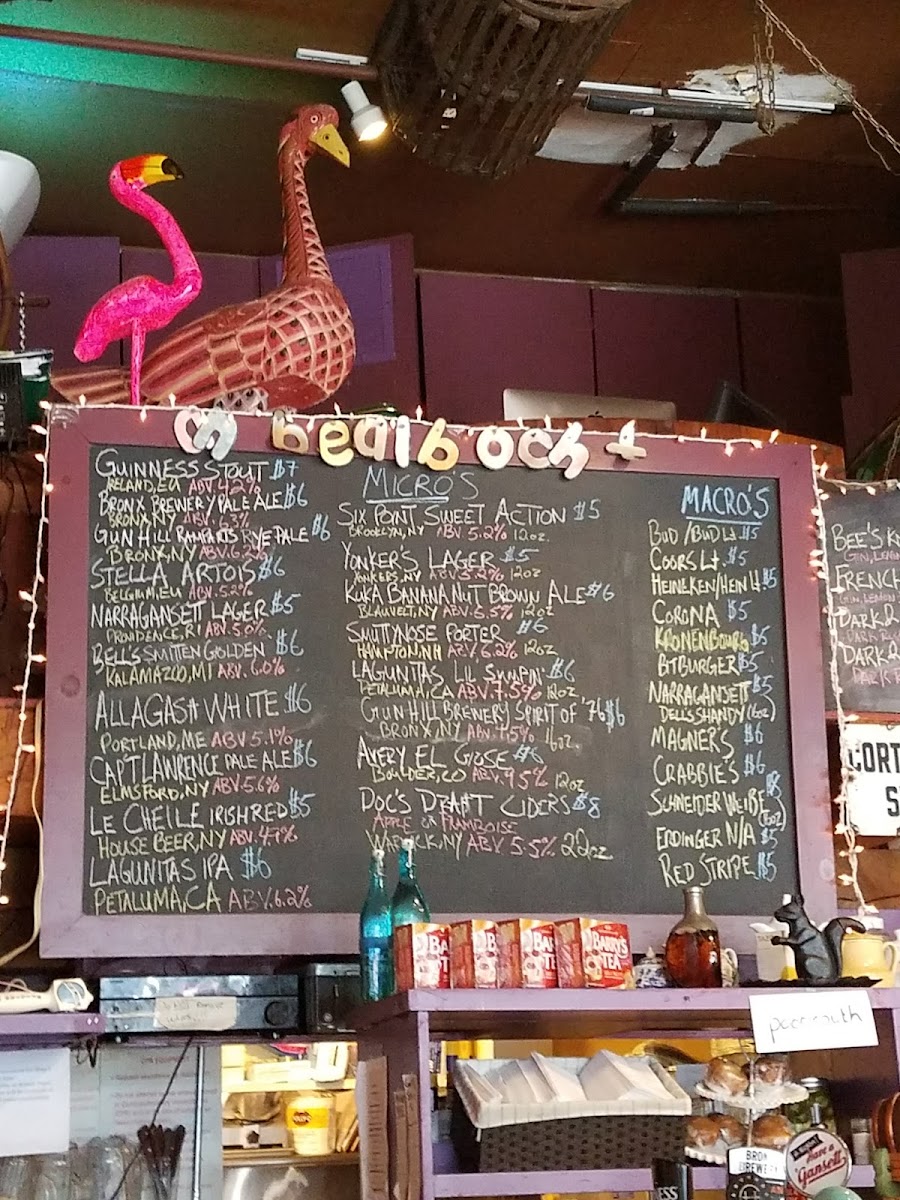 GUINNESS STOUT $7
IRELAND, EU ABV 4.2%
BRONX BREWERY PALE ALE $6
BRONX, NY ABV. 6.3%
GUN HILL RAMPARTS RYE PALE $6
BRONX, NY ABV. 6.2%
STELLA ARTOIS $6
BELGIUM, EU ABV. 5.2%
NARRAGANSETT LAGER $5
PROVIDENCE, RI ABV. 5.0%
BELL'S SMITTEN GOLDEN $6
KALAMAZOO, MI ABV. 6.0%
ALLAGASH WHITE $6
PORTLAND, ME ABV 5.1%
CAPT LAWRENCE PALE ALE $6
ELMSFORD, NY ABV 5.6%
LE CHEILE IRISH RED $5
HOUSE BEER, NY ABV. 4.7%
LAGUNITAS IPA $6
PETALUMA, CA ABV. 6.2%
MICRO'S
SIX POINT SWEET ACTION $5
BROOKLYN, NY ABV 5.2% 12oz.
YONKER'S LAGER $5
YONKERS, NY ABV 5.2% 12oz
KUKA BANANA NUT BROWN ALE $6
BLAUVELT, NY ABV. 5.5% 12oz
SMUTTYNOSE PORTER $6
HAMPTON, NH ABV. 6.2% 12oz
LAGUNITAS LIL' SUMPIN' $6
PETALUMA, CA ABV. 7.5% 12oz
GUN HILL BREWERY SPIRIT OF '76 $6
BRONX, NY ABV. 7.5% 16oz.
AVERY EL GOSE $6
BOULDER, CO ABV. 9.5% 12oz
DOC'S DRAFT CIDERS $8
APPLE OR FRAMBOISE
WARWICK, NY ABV. 5.5% 22oz
MACRO'S
BUD/BUD Lt. $5
COORS Lt. $5
HEINEKEN/HEIN Lt $5
CORONA $5
KRONENBOURG $5
BITBURGER $5
NARRAGANSETT $5
DELL'S SHANDY (16oz)
MAGNER'S $6
CRABBIE'S $6
SCHNEIDER WEIßE $8
(16oz)
ERDINGER N/A $5
RED STRIPE $5
BEE'S
GIN,
FRENCH
GIN, LEMON
DARK
DARK
DARK
DARK
BARRY'S
TEA
BREWERY
Have a
'Gansett